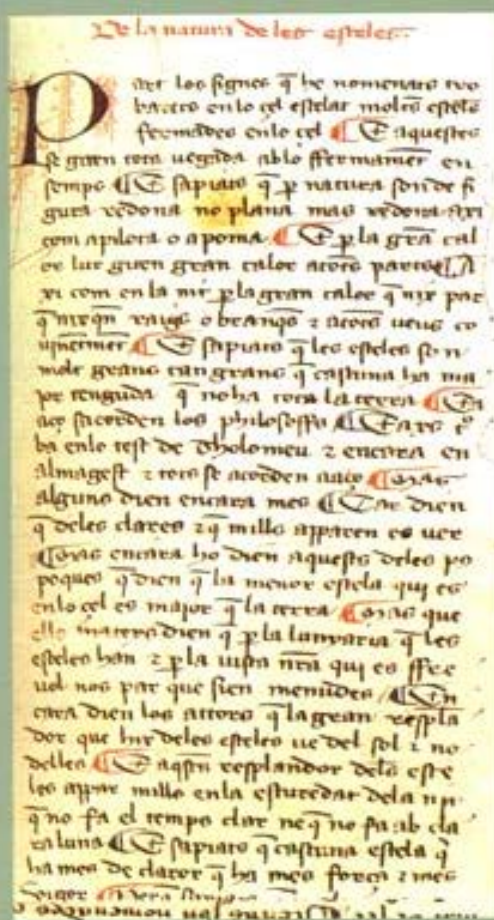 De la natura de les esteles.
Part los signes q̄ he nomenats tro
barets enlo çel estelat moltes esteles
fermades enlo çel E aquestes
se giren tota vegada ablo ffermament en
semps E sapiats q̄ ꝑ natura son de fi
gura redona no plana mas redona axi
com apilota o apoma E ꝑ la gran cal
or lur giten gran calor atots parts A
xi com en la nit ꝑ la gran calor q̄ nix par
q̄ nixqn̄ raigs o branqs ⁊ atots veus co
E sapiats q̄ les esteles son
molt grans tan grans q̄ castuna ha ma
jor tenguda q̄ no ha tota la terra En
aço sacorden los philosoffs E axs tro
ba enlo test de Tholomeu ⁊ encara en
almagest ⁊ tots se acorden aaço Mas
alguns dien encara mes Car dien
q̄ deles clares ⁊ q̄ mills apparen es ver
Mas encara ho dien aquests deles po
poques q̄ dien q̄ la menor estela qui es
enlo çel es major q̄ la terra Mas que
ells matexs dien q̄ ꝑ la lunyaria q̄ les
esteles han ⁊ ꝑ la vista nr̄a qui es ffre
vol nos par que sien menudes En
cara dien los actors q̄ la gran resplā
dor que hix deles esteles ve del sol ⁊ no
delles E aqstn̄ resplandor deles este
les appar mills en la escuredat dela nit
q̄ no fa el temps clar ne q̄ no fa ab cla
ra luna E sapiats q̄ castuna estela q̄
ha mes de claror q̄ ha mes força ⁊ mes
vigor